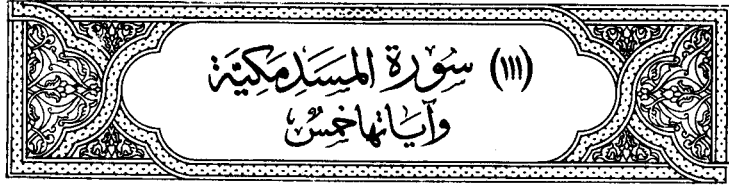 (١١١) سُورَة المَسَدِ مَكِيَّة
وَآيَاتها خَمسٌ